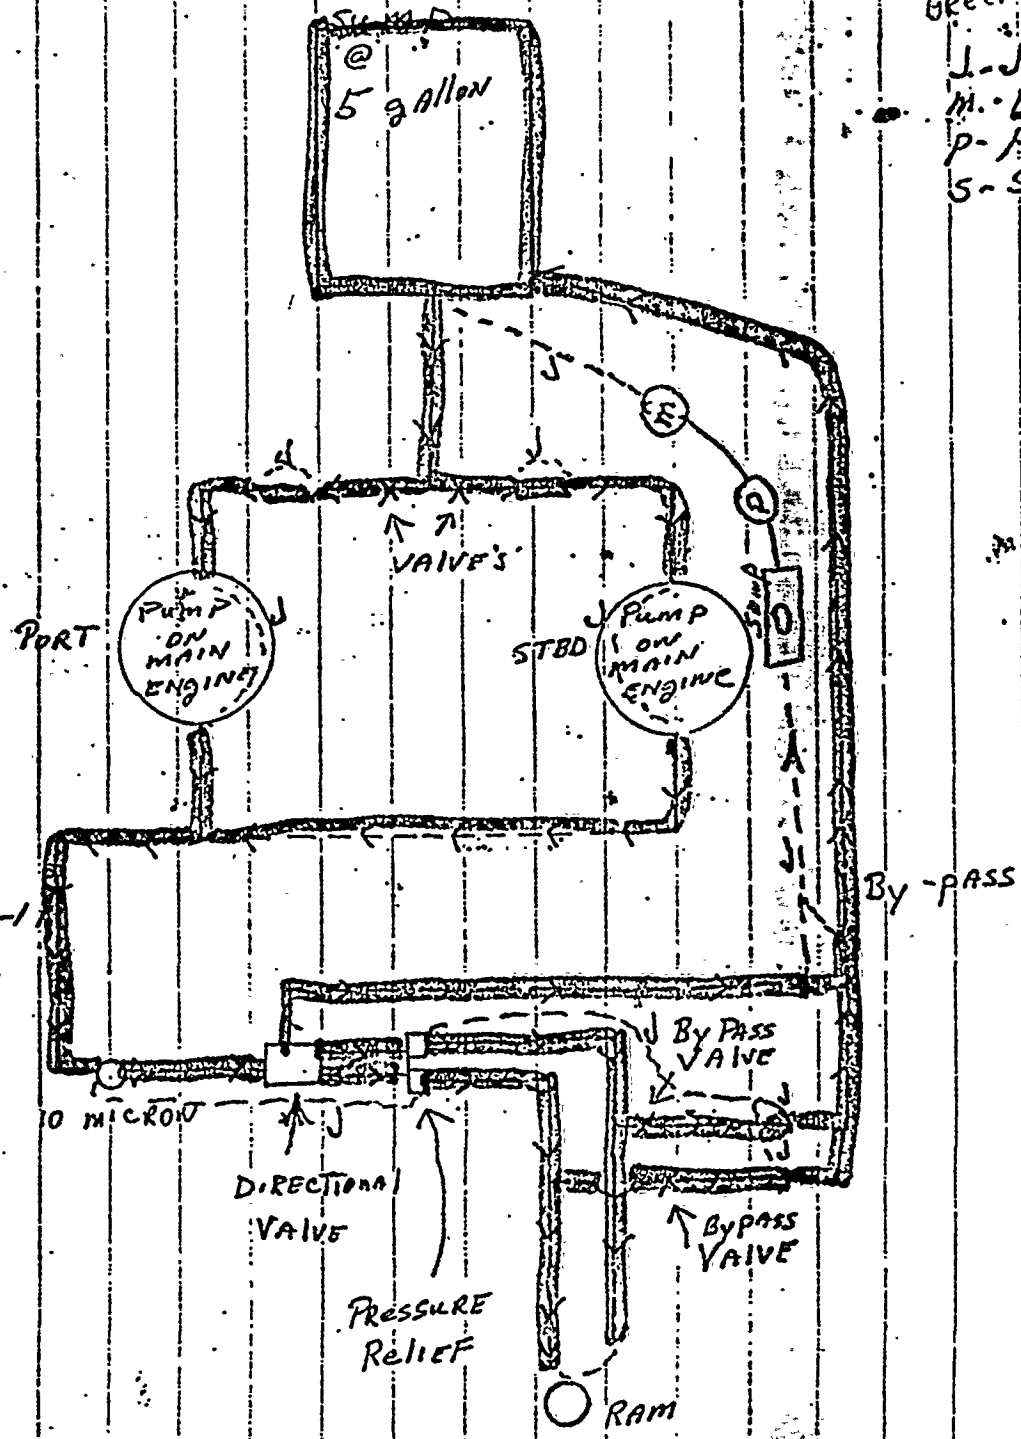 SUMP
@
5 gallon
J.-
M.-
P-
S-S
J
E
J
J
P
VALVE'S
Sump
O
PORT
Pump
ON
MAIN
ENGINE
J
STBD
J
Pump
ON
MAIN
ENGINE
By-pASS
J
By PASS
VALVE
10 MICRON
J
J
DIRECTIONAL
VALVE
BypASS
VALVE
PRESSURE
RELIEF
RAM